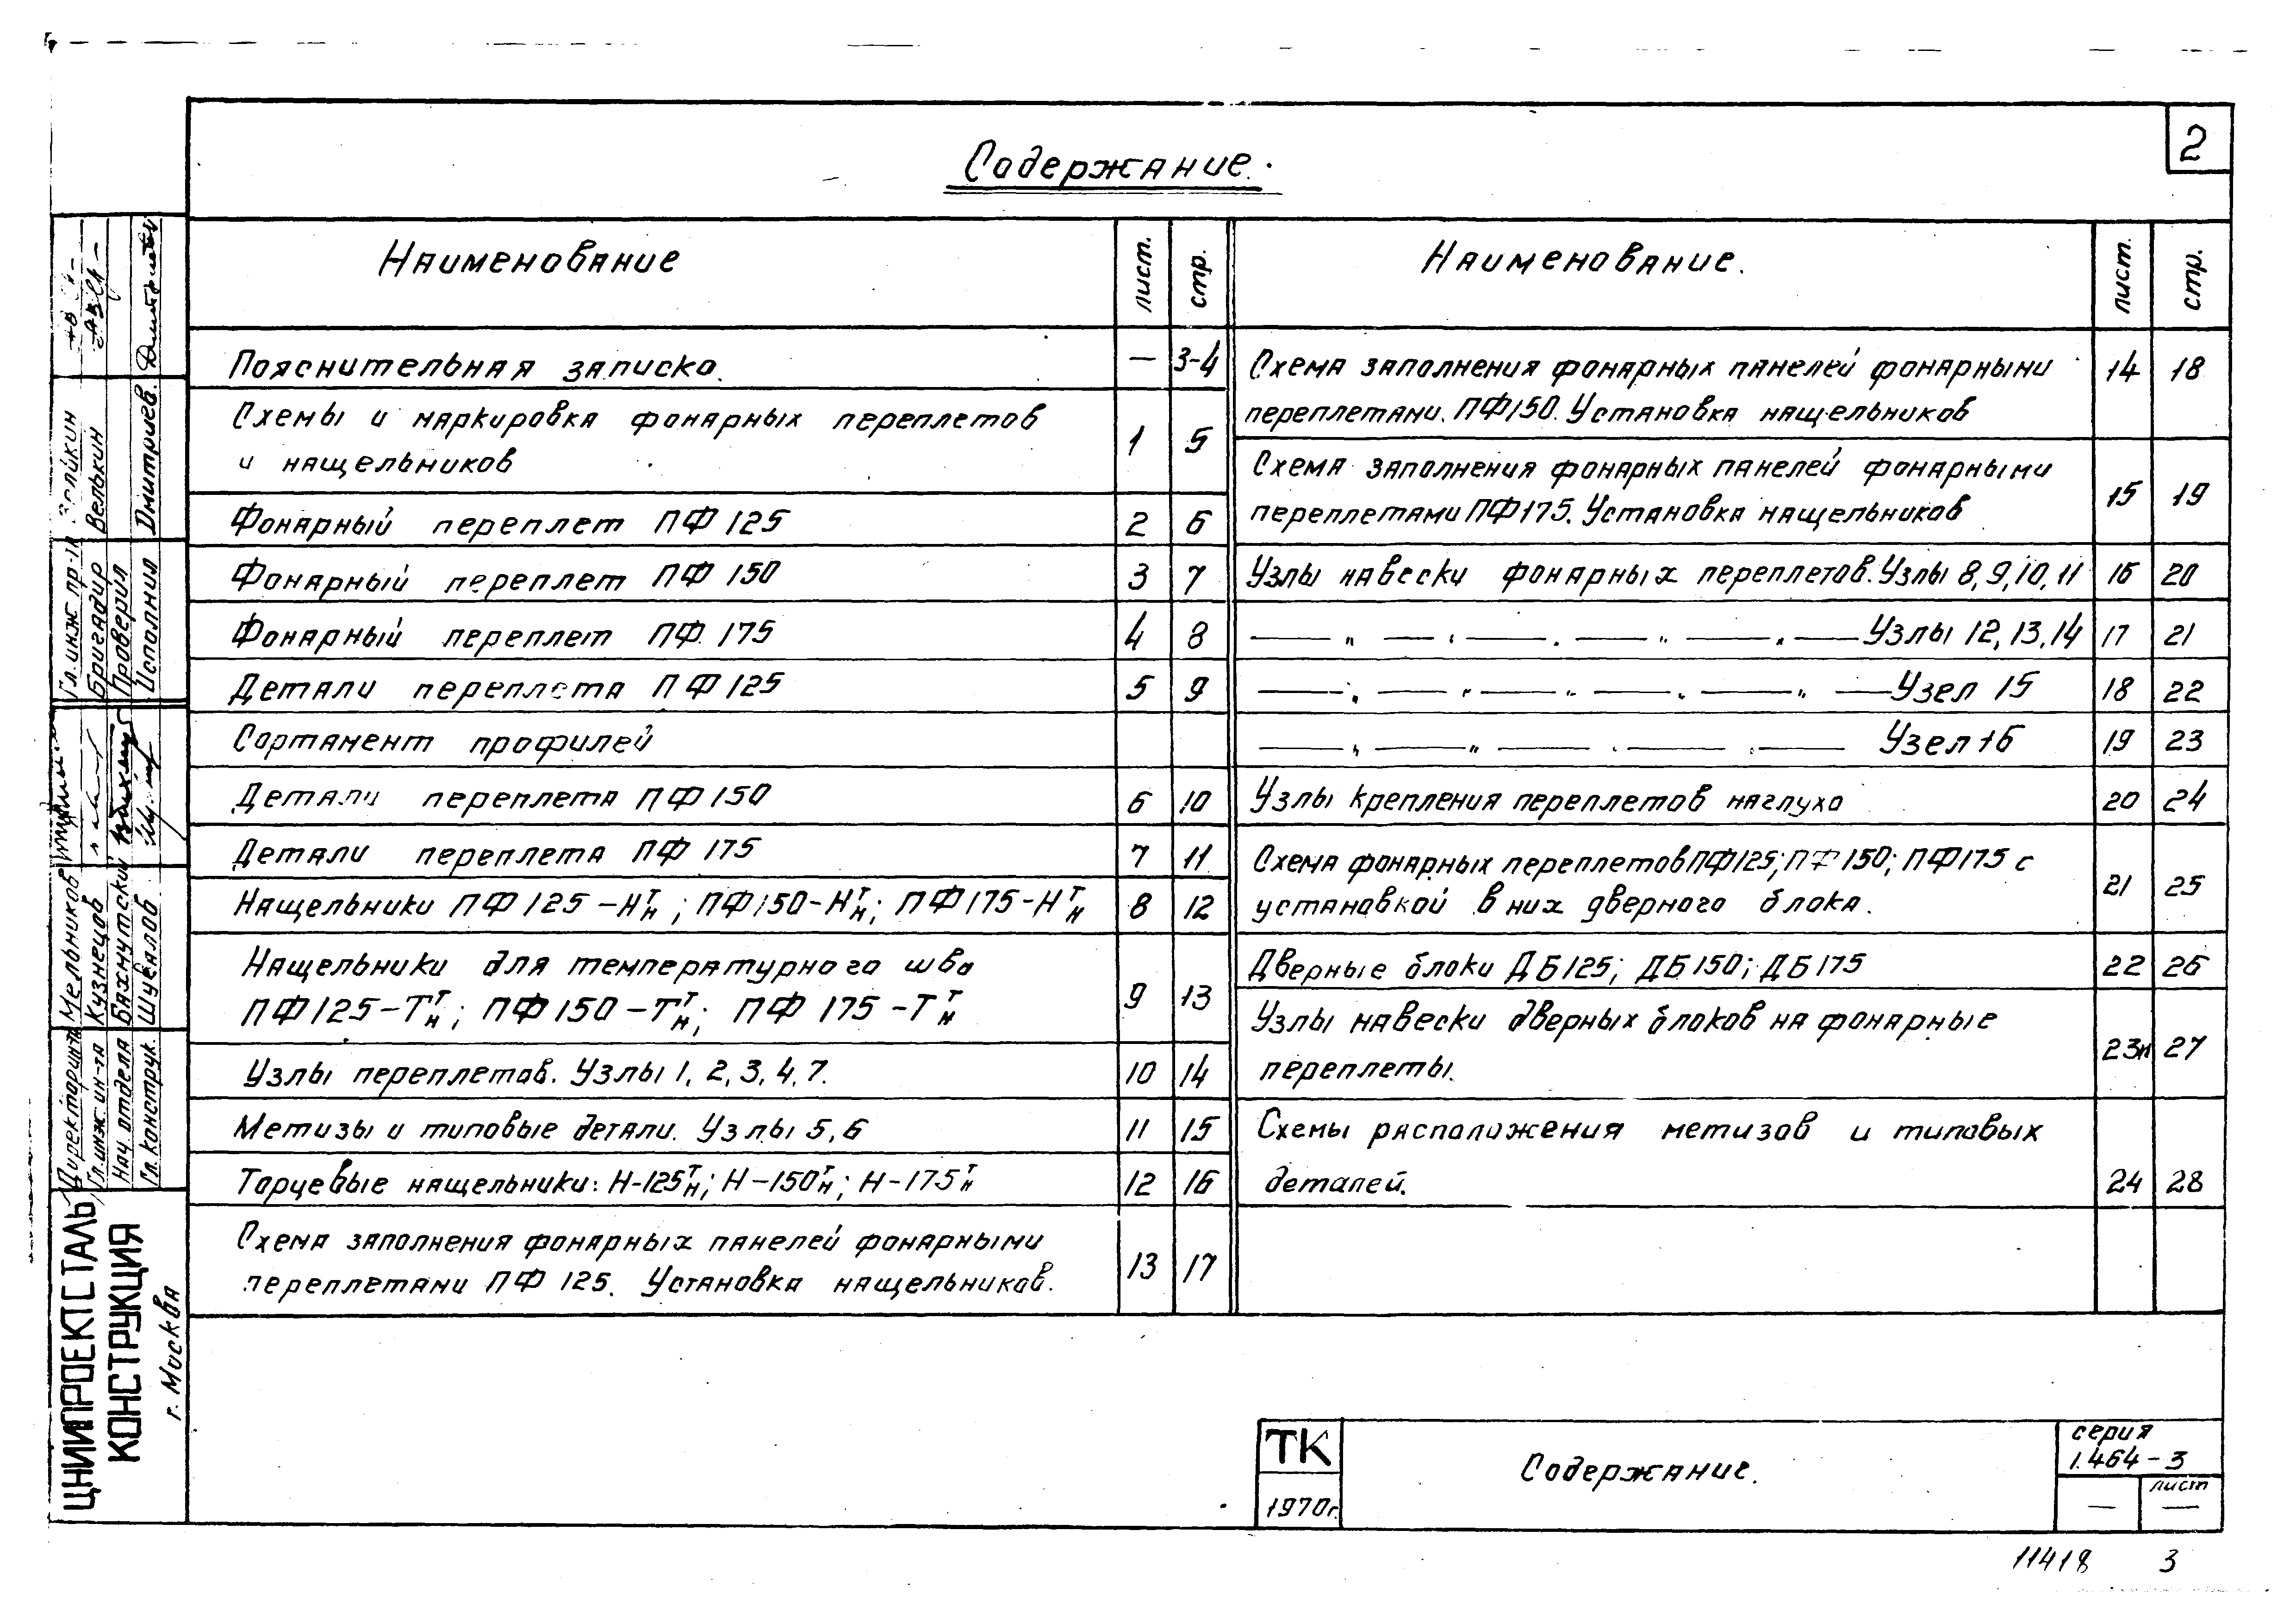 2
Содержание.
Наименование лист. стр.
Пояснительная записка. — 3-4
Схемы и маркировка фонарных переплетов
и нащельников 1 5
Фонарный переплет ПФ 125 2 6
Фонарный переплет ПФ 150 3 7
Фонарный переплет ПФ 175 4 8
Детали переплета ПФ 125 5 9
Сортамент профилей
Детали переплета ПФ 150 6 10
Детали переплета ПФ 175 7 11
Нащельники ПФ 125-Нᵀн; ПФ150-Нᵀн; ПФ175-Нᵀн 8 12
Нащельники для температурного шва
ПФ125-Тᵀн; ПФ150-Тᵀн; ПФ 175-Тᵀн 9 13
Узлы переплетов. Узлы 1, 2, 3, 4, 7. 10 14
Метизы и типовые детали. Узлы 5, 6 11 15
Торцевые нащельники: Н-125ᵀн; Н-150ᵀн; Н-175ᵀн 12 16
Схема заполнения фонарных панелей фонарными
переплетами ПФ 125. Установка нащельников. 13 17
Наименование. лист. стр.
Схема заполнения фонарных панелей фонарными 14 18
переплетами. ПФ150. Установка нащельников
Схема заполнения фонарных панелей фонарными
переплетами ПФ175. Установка нащельников 15 19
Узлы навески фонарных переплетов. Узлы 8, 9, 10, 11 16 20
— „ — „ — „ — „ — „ — Узлы 12, 13, 14 17 21
— „ — „ — „ — „ — „ — Узел 15 18 22
— „ — „ — „ — „ — Узел 16 19 23
Узлы крепления переплетов наглухо 20 24
Схема фонарных переплетов ПФ125; ПФ150; ПФ175 с
установкой в них дверного блока. 21 25
Дверные блоки ДБ125; ДБ150; ДБ175 22 26
Узлы навески дверных блоков на фонарные
переплеты. 23и 27
Схемы расположения метизов и типовых
деталей. 24 28
ТК
1970г.
Содержание.
серия
1.464-3
лист
— —
11418 3
Гл. инж. пр-та
Бригадир Велькин
Проверил
Исполнил Дмитриев.
Директор ин-та Мельников
Гл. инж. ин-та Кузнецов
Нач. отдела Бахмутский
Гл. конструк. Шувалов
ЦНИИПРОЕКТСТАЛЬ
КОНСТРУКЦИЯ
г. Москва